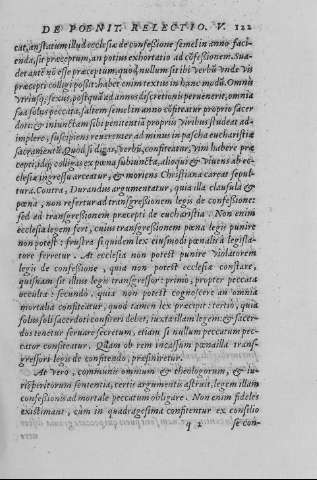 DE POENIT. RELECTIO. V. 122
cat, an statum illud ecclesiæ de confeßione semel in anno faci-
enda, sit præceptum, an potius exhortatio ad cõfeßionem. Sua-
det autē nō esse præceptum, quod nullum sit ibi verbū vnde vis
præcepti colligi poßit: habet enim textus in hanc modū. Omnis
vtriusq; sexus, postquā ad annos discretionis peruenerit, omnia
sua solus peccata, saltem semel in anno cōfiteatur proprio sacer
doti: & iniunctam sibi pœnitentiā proprijs viribus studeat ad-
implere, suscipiens reuerenter ad minus in pascha eucharistiæ
sacramentū. Quod si digas, verbū, confiteatur, vim habere præ
cepti, idq; colligas ex pœna subiuncta, alioqui & viuens ab ec-
clesiæ ingressu arceatur, & moriens Christiana careat sepul-
tura. Contra, Durandus argumentatur, quia illa clausula &
pœna, non refertur ad transgreßionem legis de confeßione:
sed ad transgreßionem præcepti de eucharistia. Non enim
ecclesia legem fert, cuius transgressionem pœna legis punire
non potest: frustra siquidem lex eiusmodi pœnali à legisla-
tore ferretur. At ecclesia non potest punire violatorem
legis de confeßione, quia non potest ecclesiæ constare,
quisnam sit illius legis transgressor: primò, propter peccata
occulta: secundò, quia non potest cognoscere an omnia
mortalia confiteatur, quod tamen lex præcepit: tertiò, quia
solus soli sacerdoti confiteri debet, iuxta illam legem: & sacer-
dos tenetur seruare secretum, etiam si nullum peccatum pec-
cator confiteatur. Quam ob rem incassum pœna illa trans-
gressori legis de confitendo, præfiniretur.
At vero, communis omnium & theologorum, & iu-
risperitorum sententia, certis argumentis astruit, legem illam
confeßionis ad mortale peccatum obligare. Non enim fideles
existimant, cùm in quadragesima confitentur ex consilio
q 2 se con-